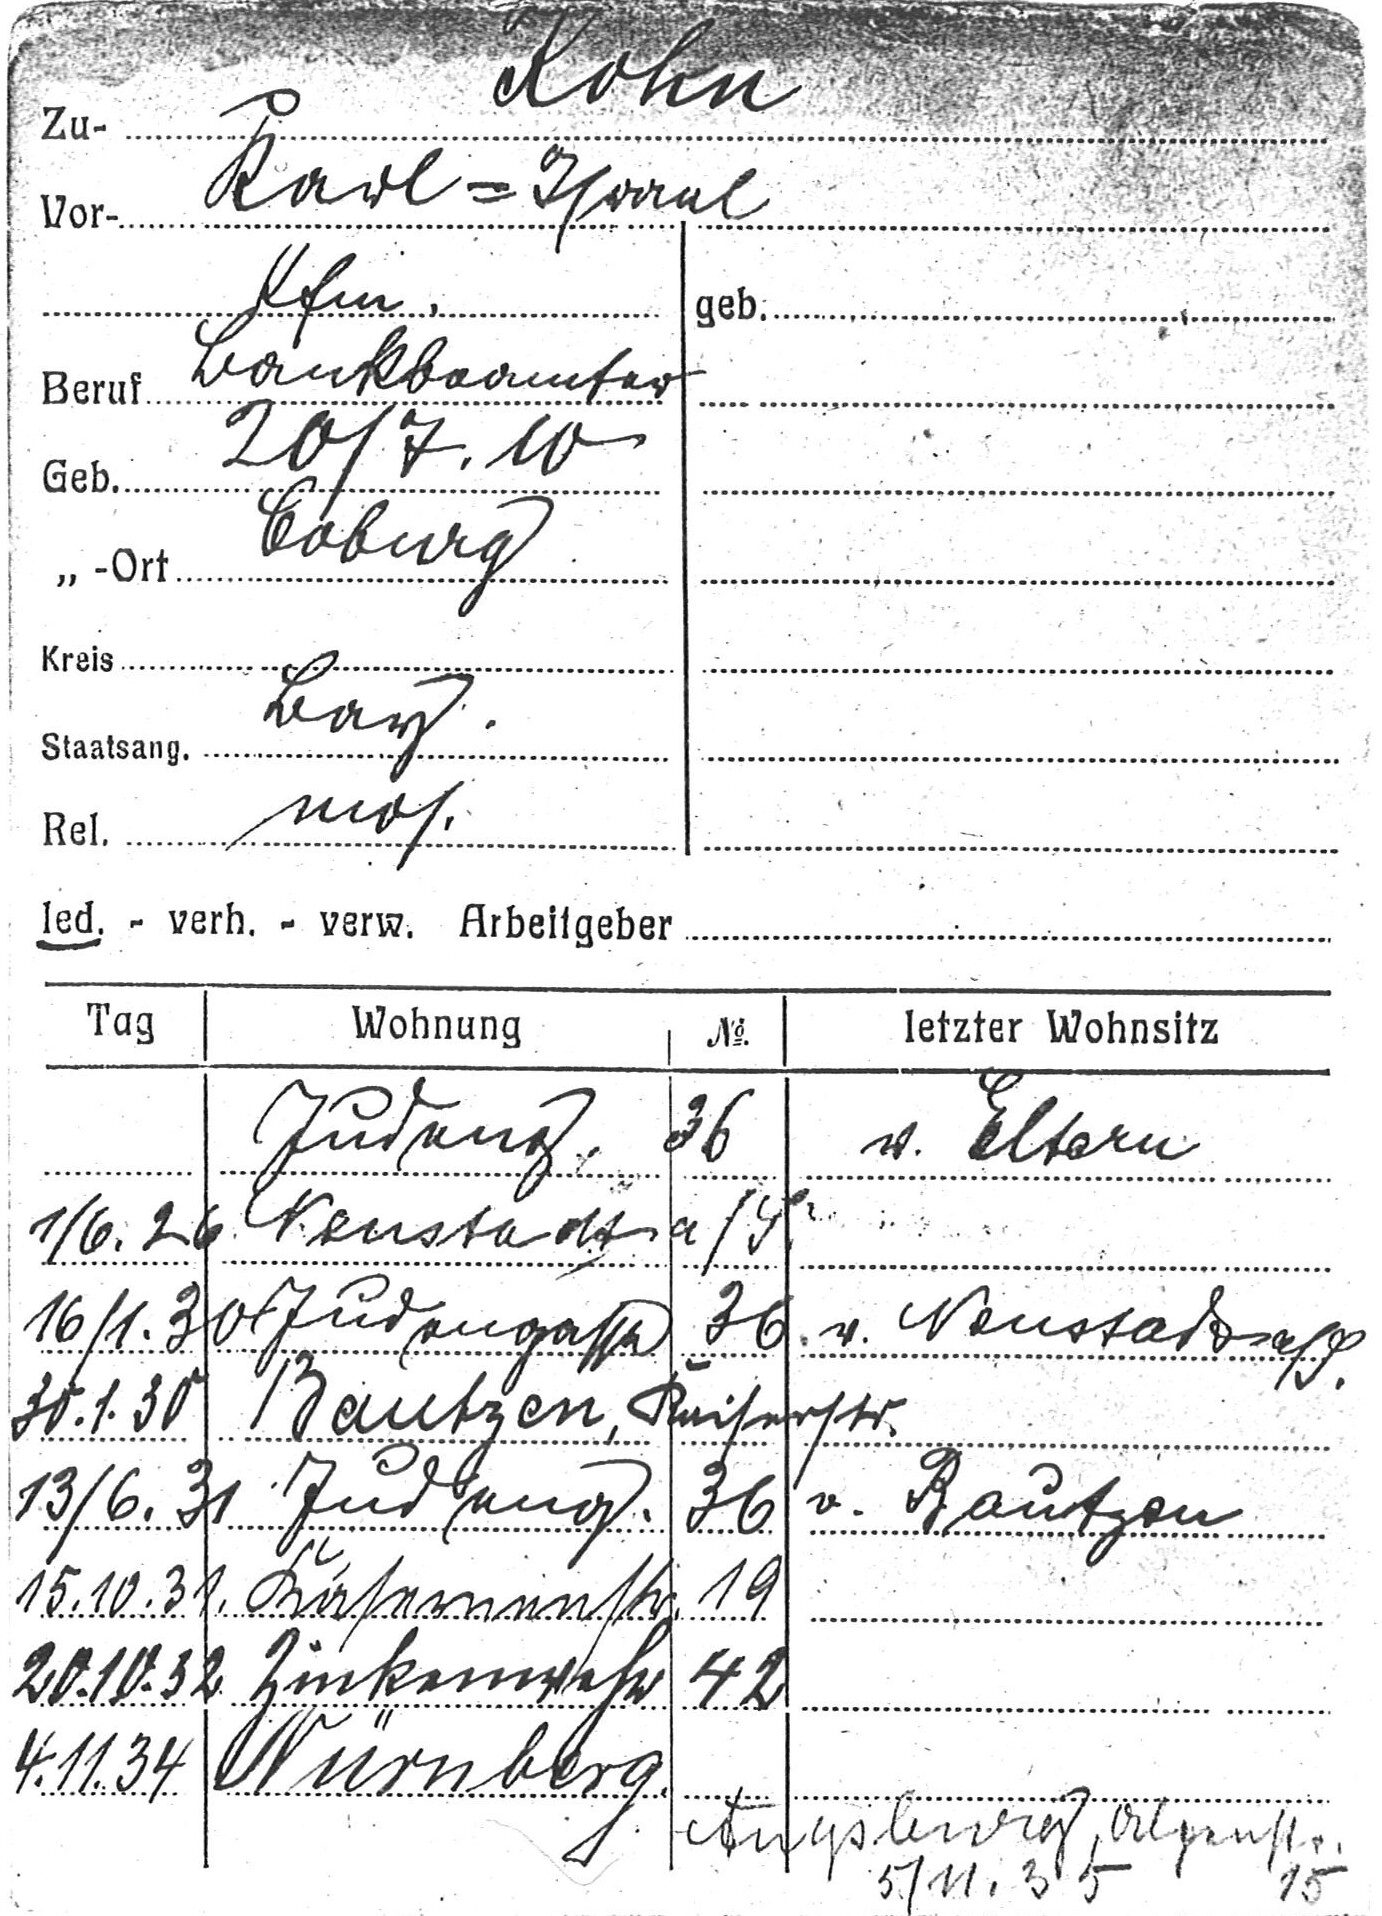 Kohn
Zu-
Vor- Karl = Israel
Kfm. geb.
Beruf Bankbeamter
Geb. 20/7. 10
„ -Ort Coburg
Kreis
Staatsang. Bay.
Rel. mos.
led. - verh. - verw. Arbeitgeber
Tag Wohnung No. letzter Wohnsitz
Judeng. 36 v. Eltern
1/6. 26 Neustadt a/H.
16/1. 30 Judengasse 36 v. Neustadt a/H.
30.1.30 Bautzen, Kaiserstr.
13/6. 31 Judeng. 36 v. Bautzen
15.10.31. Kasernenstr. 19
20.10.32 Zinkenwehr 42
4.11.34 Nürnberg.
Augsburg,
5/11. 35 15